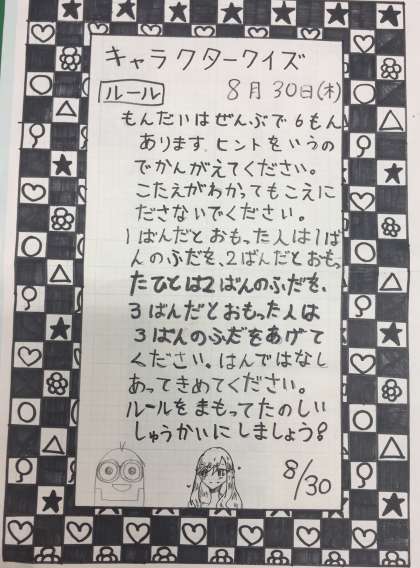 キャラクタークイズ
ルール
8月30日(木)
もんだいはぜんぶで6もん
あります。ヒントをいうの
でかんがえてください。
こたえがわかってもこえに
ださないでください。
1ばんだとおもった人は1ば
んのふだを、2ばんだとおもっ
たひとは2ばんのふだを、
3ばんだとおもった人は
3ばんのふだをあげて
ください。はんではなし
あってきめてください。
ルールをまもってたのしい
しゅうかいにしましょう!
8/30